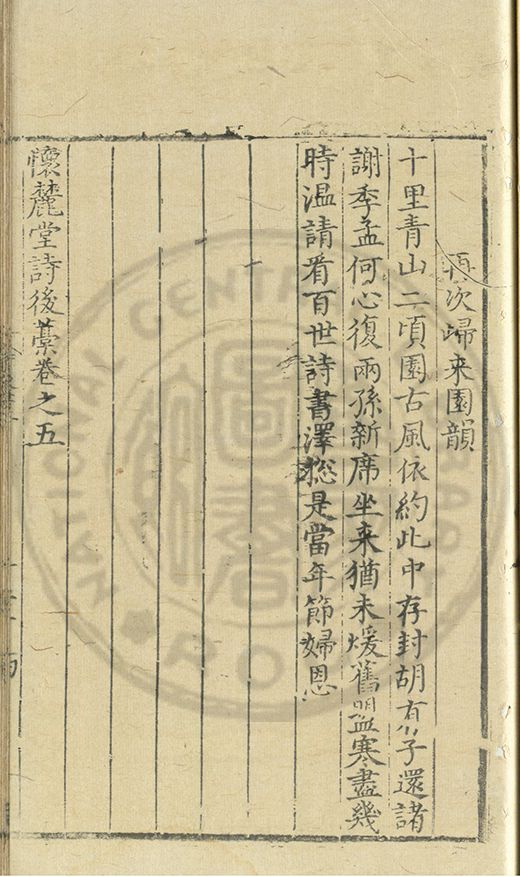 再次歸来園韻
十里青山二頃園古風依約此中存封胡有子還諸
謝季孟何心復兩孫新席坐来猶未煖舊盟寒盡幾
時温請看百世詩書澤捴是當年節婦恩
懷麓堂詩後藁卷之五